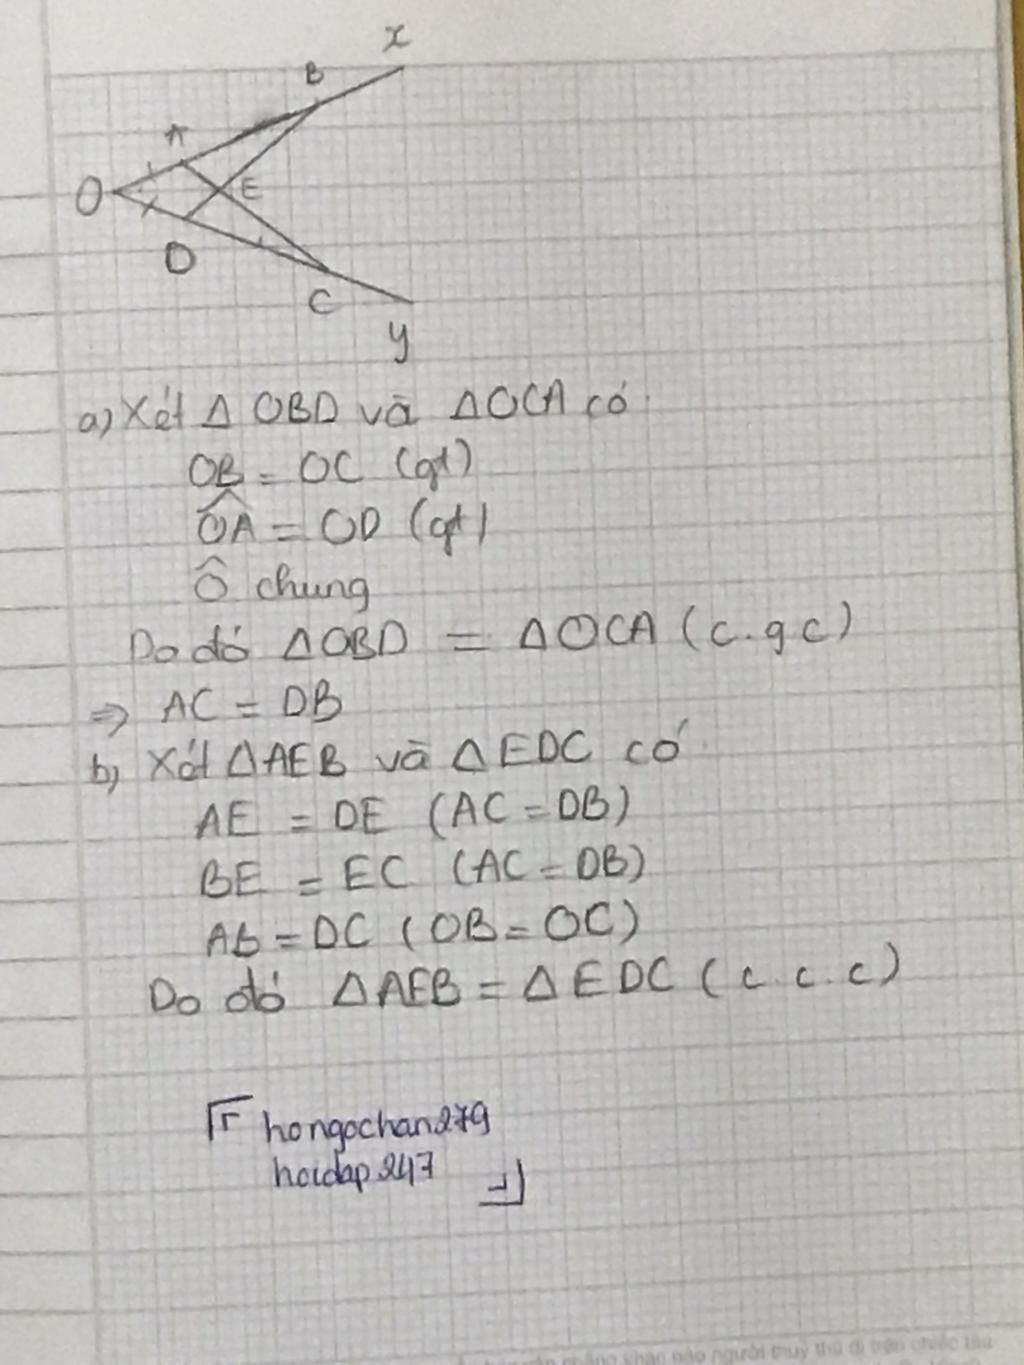 x
B
A
O
E
D
C
y
a) Xét Δ OBD và ΔOCA có
OB = OC (gt)
OA = OD (gt)
Ô chung
Do đó ΔOBD = ΔOCA (c.g c)
⇒ AC = DB
b) Xét ΔAEB và ΔEDC có
AE = DE (AC = DB)
BE = EC (AC = DB)
AB = DC (OB = OC)
Do đó ΔAEB = ΔEDC (c.c.c)
hongochan279
hoidap247
người thuỷ thủ đi trên chiếc tàu